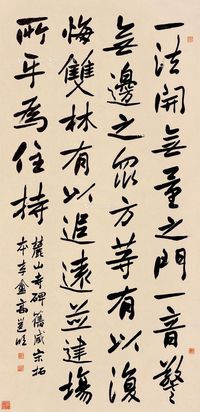 一法開無量之門一音警
無邊之眾方等有以復
悔雙林有以追遠並建塲
所牙為住持
麓山寺碑舊臧宋拓
本李盦高邕臨